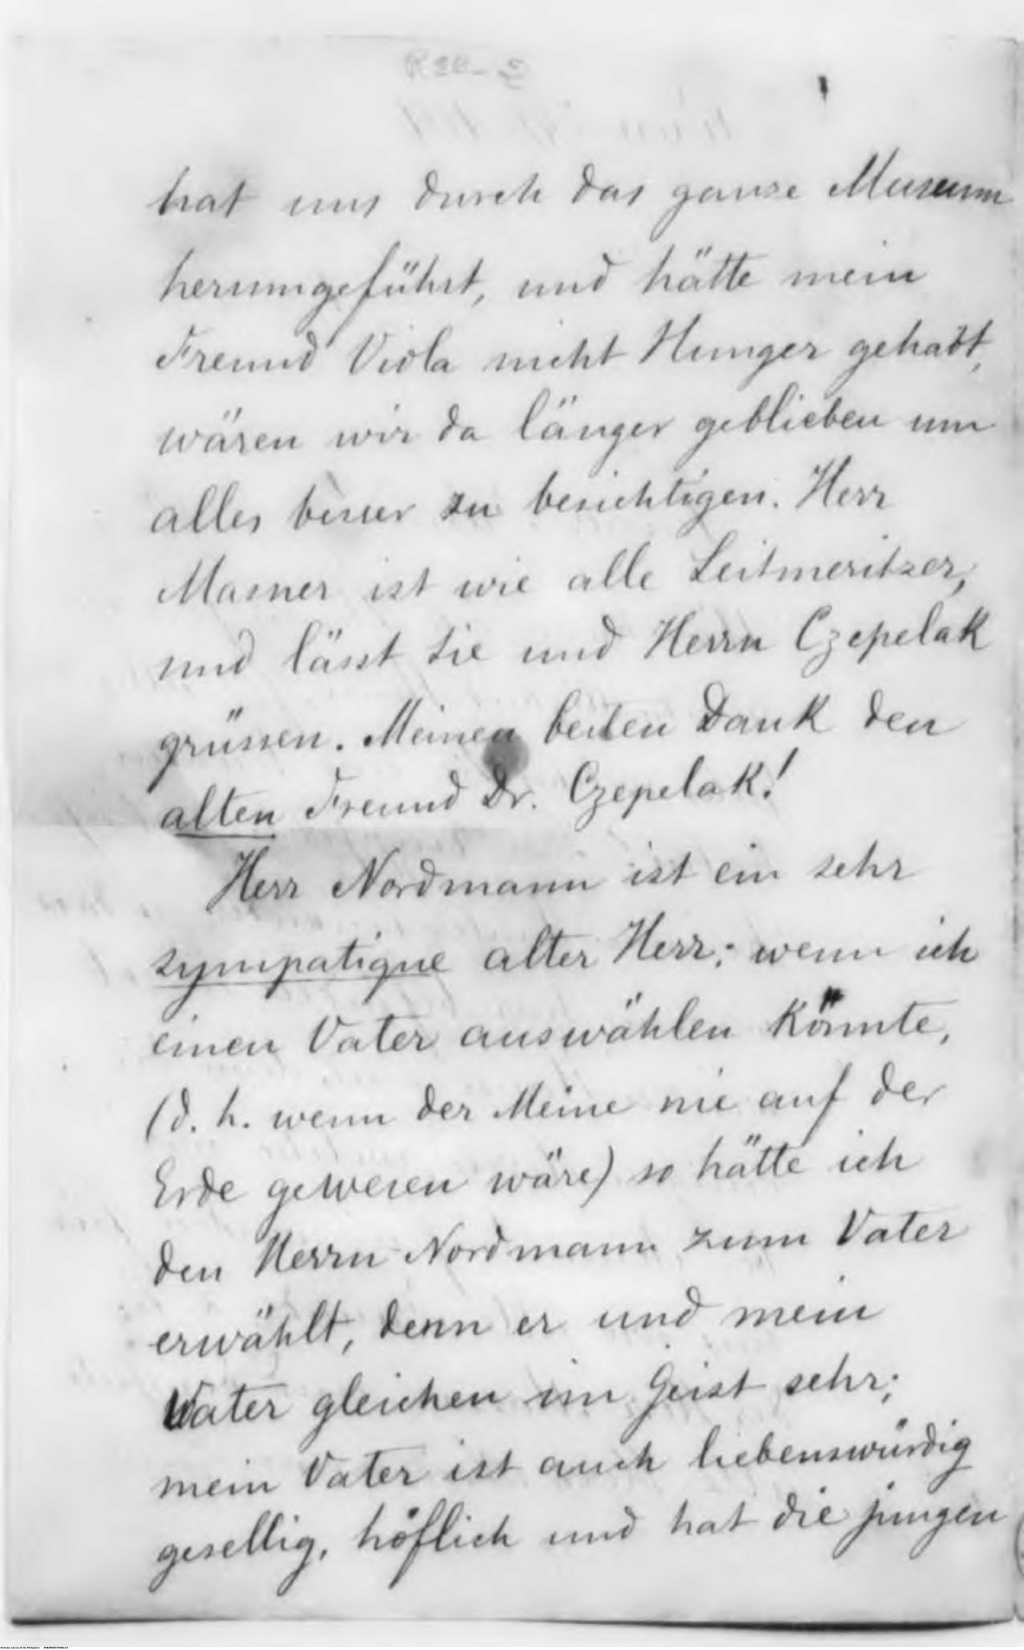 hat uns durch das ganze Museum
herumgeführt, und hätte mein
Freund Viola nicht Hunger gehabt,
wären wir da länger geblieben um
alles besser zu besichtigen. Herr
Masner ist wie alle Leitmeritzer,
und lässt Sie und Herrn Czepelak
grüssen. Meinen besten Dank den
alten Freund Dr. Czepelak!
Herr Nordmann ist ein sehr
sympatique alter Herr; wenn ich
einen Vater auswählen könnte,
(d. h. wenn der Meine nie auf der
Erde gewesen wäre) so hätte ich
den Herrn Nordmann zum Vater
erwählt, denn er und mein
Vater gleichen im Geist sehr;
mein Vater ist auch liebenswürdig
gesellig, höflich und hat die jungen